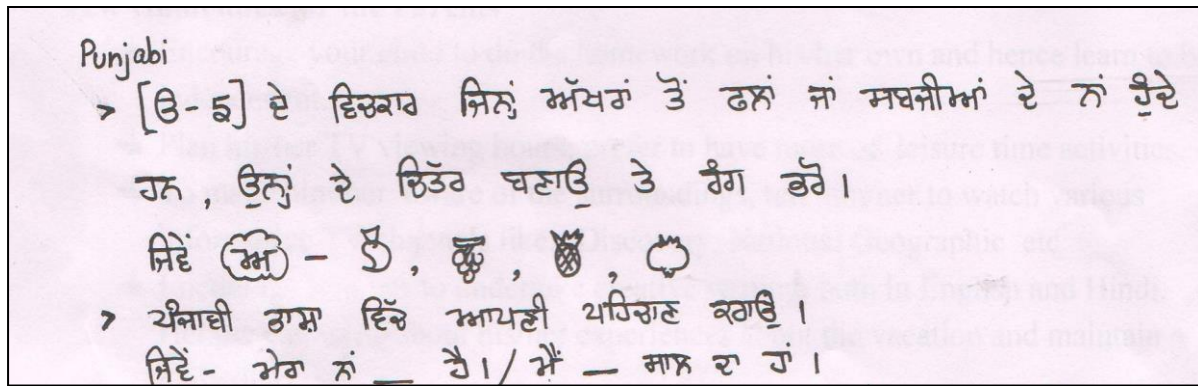 Punjabi
> [ੳ-ਙ] ਦੇ ਵਿਚਕਾਰ ਜਿਨ੍ਹਾਂ ਅੱਖਰਾਂ ਤੋਂ ਫਲਾਂ ਜਾਂ ਸਬਜੀਆਂ ਦੇ ਨਾਂ ਹੁੰਦੇ
ਹਨ, ਉਨ੍ਹਾਂ ਦੇ ਚਿੱਤਰ ਬਣਾਉ ਤੇ ਰੰਗ ਭਰੋ।
ਜਿਵੇਂ - , , ,
> ਪੰਜਾਬੀ ਭਾਸ਼ਾ ਵਿੱਚ ਆਪਣੀ ਪਹਿਚਾਣ ਕਰਾਉ।
ਜਿਵੇਂ - ਮੇਰਾ ਨਾਂ __ ਹੈ। / ਮੈਂ __ ਸਾਲ ਦਾ ਹਾਂ।